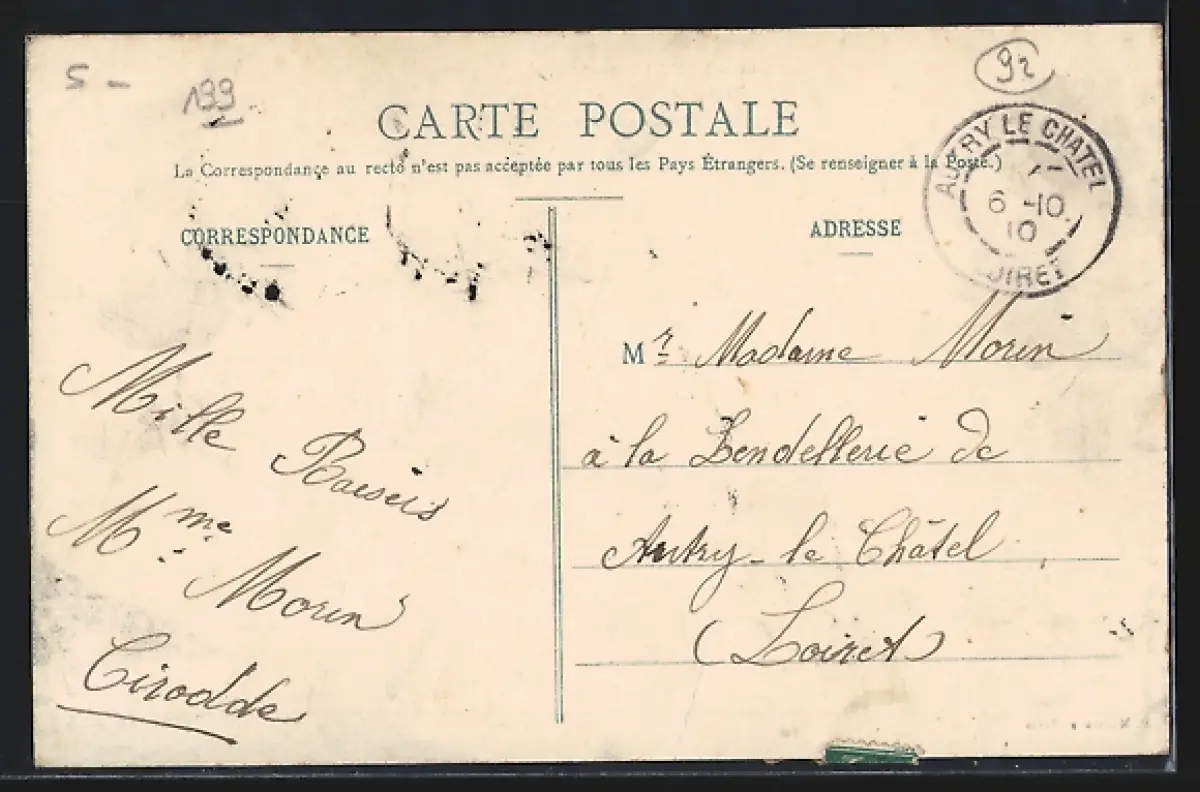 5 -
199
92
CARTE POSTALE
La Correspondance au recto n'est pas acceptée par tous les Pays Étrangers. (Se renseigner à la Poste.)
CORRESPONDANCE
ADRESSE
AUTRY LE CHATEL
6 -10
10
LOIRET
Mille Baiseis
Mme Morin
Cirodde
Mr Madame Morin
à la Bendellerie de
Autry-le Châtel
(Loiret)